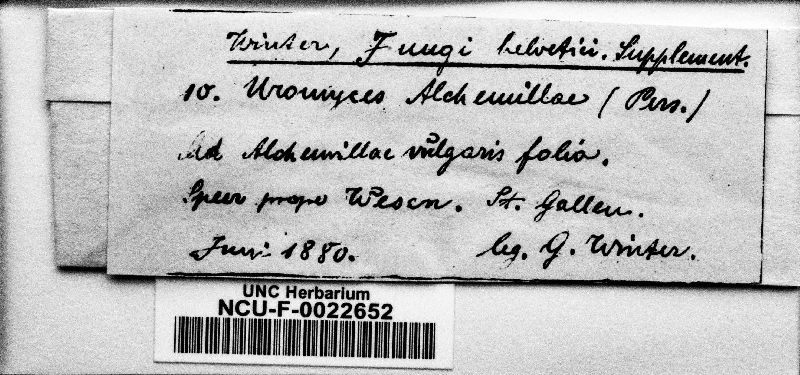 Winter, Fungi helvetici. Supplement.
10. Uromyces Alchemillae (Pers./
Ad Alchemillae vulgaris folia.
Speer prope Wesen. St. Gallen.
Juni 1880. leg. G. Winter.
UNC Herbarium
NCU-F-0022652